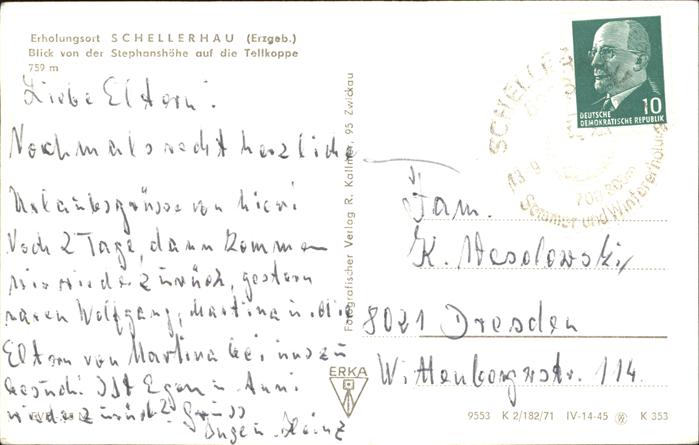 Erholungsort SCHELLERHAU (Erzgeb.)
Blick von der Stephanshöhe auf die Tellkoppe
759 m
Liebe Eltern!
Nochmals recht herzliche
Urlaubsgrüsse von hier!
Noch 2 Tage, dann kommen
wir wieder zurück, gestern
waren Wolfgang, Martina u. die
Eltern von Martina bei uns zu
Besuch. Ist Egon u. Anni
wieder zurück? Gruss
Heinz
Fotografischer Verlag R. Kallmer, 95 Zwickau
ERKA
10
DEUTSCHE
DEMOKRATISCHE REPUBLIK
SCHELLER
700-800m
Sommer und Wintererholung
Fam.
K. Wesolowski
8021 Dresden
Wittenbergstr. 114
9553 K 2/182/71 IV-14-45 K 353